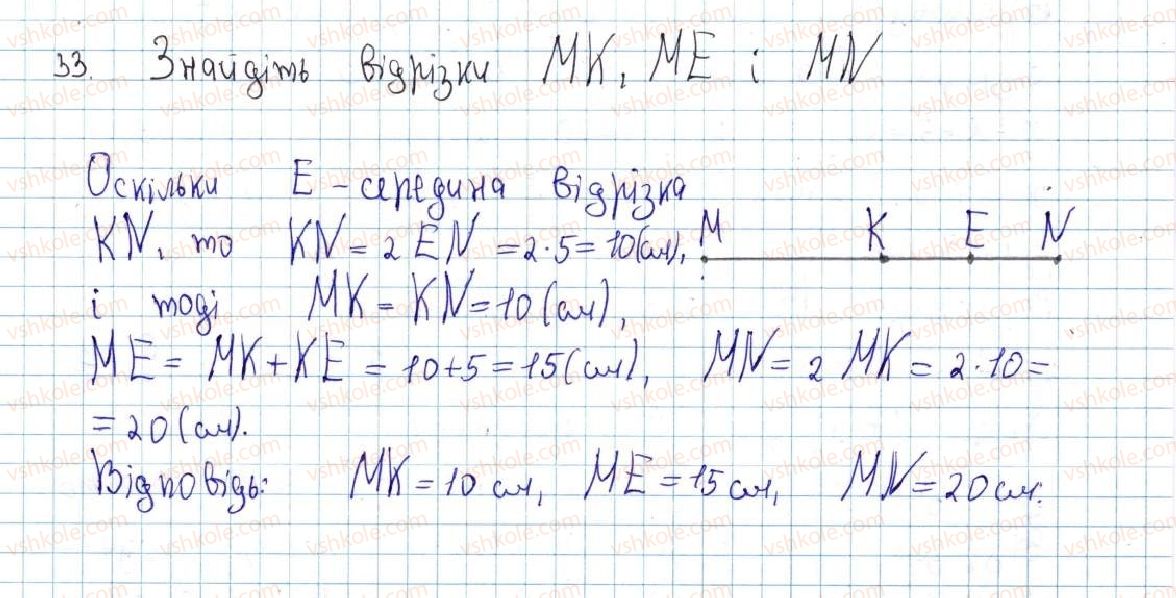 33. Знайдіть відрізки MK, ME і MN
Оскільки E - середина відрізка
KN, то KN = 2 EN = 2·5 = 10 (см),
M K E N
і тоді MK = KN = 10 (см),
ME = MK + KE = 10 + 5 = 15 (см), MN = 2 MK = 2·10 =
= 20 (см).
Відповідь: MK = 10 см, ME = 15 см, MN = 20 см.